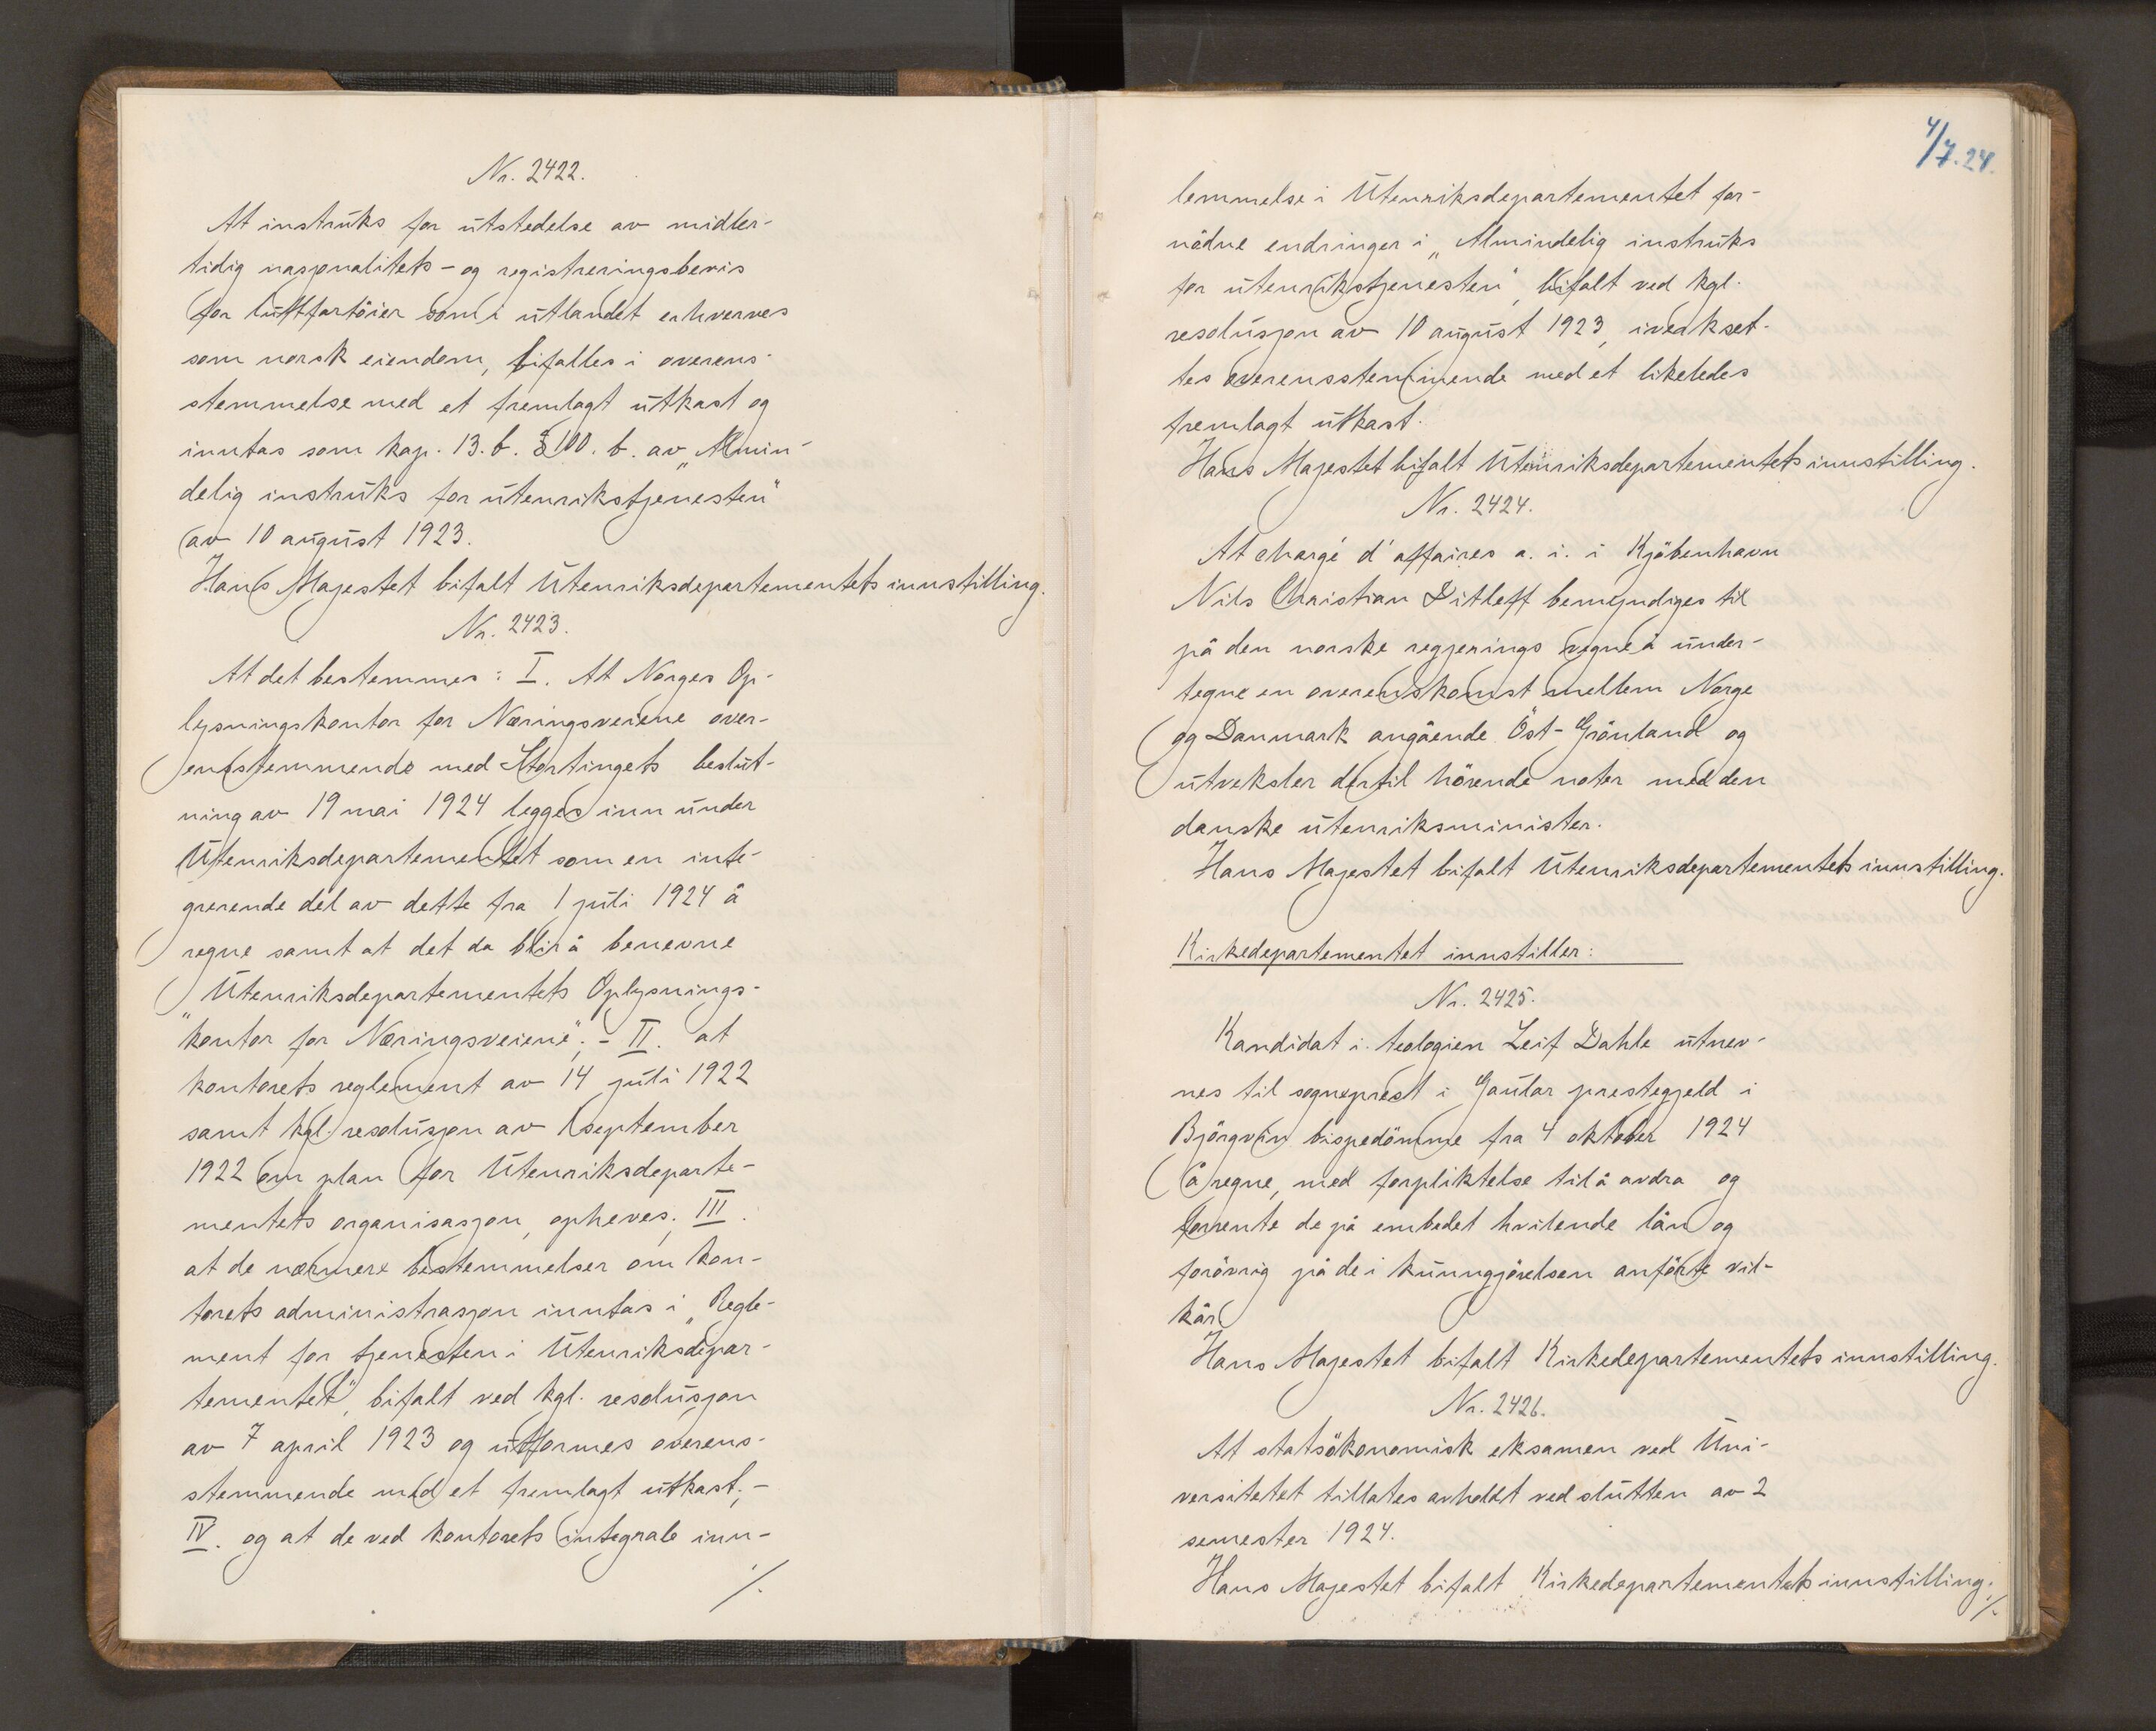 Nr. 2422.
At instruks for utstedelse av midler-
tidig nasjonalitets- og registreringsbevis
for luftfartöier som i utlandet erhverves
som norsk eiendom, bifalles i overens-
stemmelse med et fremlagt utkast og
inntas som kap. 13. b. § 100. b. av „Almin-
delig instruks for utenrikstjenesten"
av 10 august 1923.
Hans Majestet bifalt Utenriksdepartementets innstilling.
Nr. 2423.
At det bestemmes: I. At Norges Op-
lysningskontor for Næringsveiene over-
ensstemmende med Stortingets beslut-
ning av 19 mai 1924 legges inn under
Utenriksdepartementet som en inte-
grerende del av dette fra 1 juli 1924 å
regne samt at det da blir å benevne
„Utenriksdepartementets Oplysnings-
kontor for Næringsveiene"; - II. at
kontorets reglement av 14 juli 1922
samt kgl. resolusjon av 1 september
1922 om plan for Utenriksdeparte-
mentets organisasjon, opheves; III.
at de nærmere bestemmelser om kon-
torets administrasjon inntas i „Regle-
ment for tjenesten i Utenriksdepar-
tementet", bifalt ved kgl. resolusjon
av 7 april 1923 og utformes overens-
stemmende med et fremlagt utkast; -
IV. og at de ved kontorets integrale inn-
/.
4/7.24.
lemmelse i Utenriksdepartementet for-
nödne endringer i „Almindelig instruks
for utenrikstjenesten", bifalt ved kgl.
resolusjon av 10 august 1923, iverkset-
tes overensstemmende med et likeledes
fremlagt utkast.
Hans Majestet bifalt Utenriksdepartementets innstilling.
Nr. 2424.
At chargé d'affaires a. i. i Kjöbenhavn
Nils Christian Ditleff bemyndiges til
på den norske regjerings vegne å under-
tegne en overenskomst mellem Norge
og Danmark angående Öst-Grönland og
utveksler dertil hörende noter med den
danske utenriksminister.
Hans Majestet bifalt Utenriksdepartementets innstilling.
Kirkedepartementet innstiller:
Nr. 2425.
Kandidat i teologien Leif Dahle utnev-
nes til sogneprest i Gaular prestegjeld i
Björgvin bispedömme fra 4 oktober 1924
å regne, med forpliktelse til å avdra og
forrente de på embedet hvilende lån og
forövrig på de i kunngjörelsen anförte vil-
kår
Hans Majestet bifalt Kirkedepartementets innstilling.
Nr. 2426.
At statsökonomisk eksamen ved Uni-
versitetet tillates avholdt ved slutten av 2
semester 1924.
Hans Majestet bifalt Kirkedepartementets innstilling.
/.